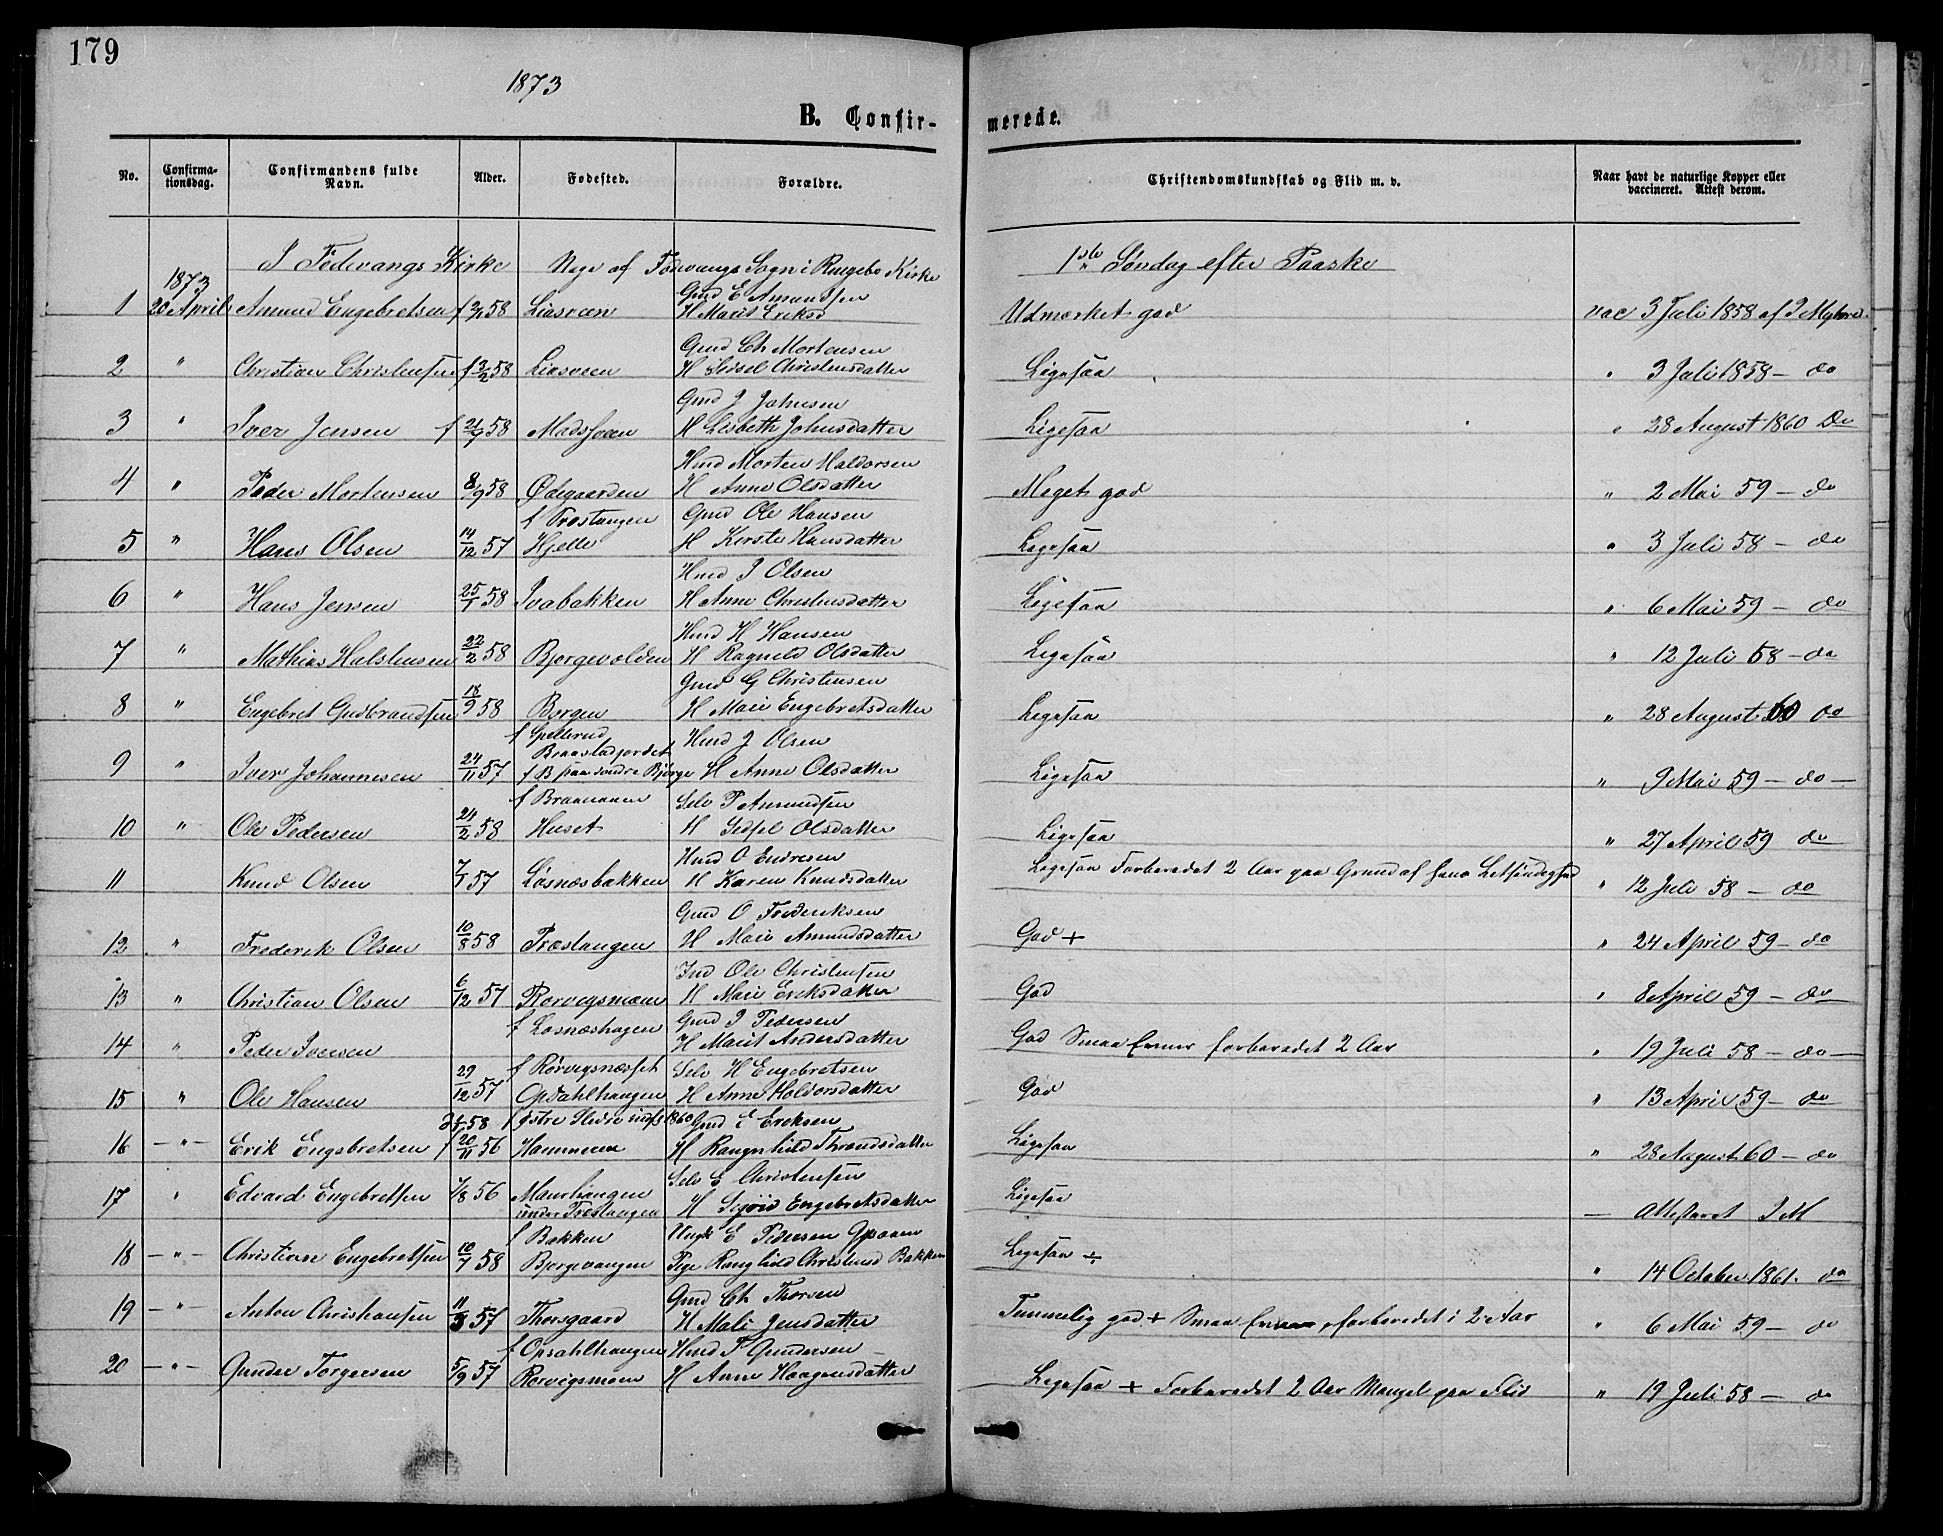 179
1873
B. Confir- merede.
No. Confirma- Confirmandens fulde Alder. Fødested. Forældre. Christendomskundskab og Flid m. v. Naar havt de naturlige Kopper eller
tionsdag. Navn. vaccineret. Attest derom.
I Fodevangs Kirke Noge af Fodevangs Sogn i Ringebo Kirke 1ste Søndag efter Paaske
1873 Gmd E Amundsen
1 20 April Amund Engebretsen 58 Liasveen H Marit Eriksd Udmærket god vac 3 Juli 1858 af
Gmd Ch Mortensen
2 " Christian Christensen f 3/2 58 Liasveen H Sidsel Christensdatter Ligesaa " 3 Juli 1858 - do
Gmd J Johnsen
3 " Iver Jensen f 21/7 58 H Lisbeth Johnsdatter Ligesaa " 28 August 1860 Do
Hmd Morten Haldorsen
4 " Peder Mortensen 8/9 58 Ødegaarden H Anne Olsdatter Meget god " 2 Mai 59 - do
f Trostangen Gmd Ole Hansen
5 " Hans Olsen 14/12 57 Hjelle H Kerste Hansdatter Ligesaa " 3 Juli 58 - do
Hmd J Olsen
6 " Hans Jensen 25/1 58 Ivabakken H Anne Christensdatter Ligesaa " 6 Mai 59 - do
Hmd H Hansen
7 " Mathias Halstensen 22/2 58 Bjorgevolden H Ragnild Olsdatter Ligesaa " 12 Juli 58 - do
Gmd G Christensen
8 " Engebret Gudbrandsen 18/9 58 Borgen H Marie Engebretsdatter Ligesaa " 28 August 60 do
f Spelerud Hmd J Olsen
Braastadjordet
9 " Iver Johannesen 24/11 57 f B paa søndre Bjørge H Anne Olsdatter Ligesaa " 9 Mai 59 - do -
f Braanaaen Selv P Amundsen
10 " Ole Pedersen 24/2 58 Huset H Sidsel Olsdatter Ligesaa " 27 April 59 do
Hmd O Endresen
11 Knud Olsen 7/1 57 Losnæsbakken H Karen Knudsdatter Ligesaa Forberedet 2 Aar paa Grund af hans Letsindighed " 12 Juli 58 - do
Gmd O Frederiksen
12 " Frederik Olsen 10/8 58 Trostangen H Marie Amundsdatter God + " 24 April 59 - do
Ind Ole Christensen
13 " Christian Olsen 6/12 57 Rorvigsmoen H Mari Eriksdatter God " 8 April 59 - do
f Losnæshagen Gmd I Pedersen
14 " Peder Iversen H Marit Andersdatter God Smaa Evner forberedet 2 Aar " 19 Juli 58 - do -
f Rørvigsnæsset Selv H Engebretsen
15 " Ole Hansen 29/12 57 Opsahlhaugen H Anne Holdorsdatter God " 13 April 59 - do
58 f østre Slidre 1860 Gmd E Eriksen
16 - " - Erik Engebretsen f 20/11 56 H Rangnhild Throndsdatter Ligesaa " 28 August 60 - do
Selv E Christensen
17 " Edvard Engebretsen 7/8 56 Maurhaugen H Sigrid Engebretsdatter Ligesaa - Attesteret I M
under Trostangen
f Bakken Ungk E Pedersen
18 - " - Christian Engebretsen 10/7 58 Bjorgevangen Pige Ranghild Christensd Bakken Ligesaa + " 14 October 1861. do
Gmd Ch Thorsen
19 - " - Anton Christiansen 11/3 57 Thorsgaard H Mali Jensdatter Temmelig god + Smaa Evner, forberedet i 2 Aar " 6 Mai 59 - do
f Opsahlhaugen Hmd T Gundersen
20 - " - Gunder Torgersen 5/9 57 Rorvigsmoen H Anne Haagensdatter Ligesaa + Forberedet 2 Aar Mangel paa Flid " 19 Juli 58 - do